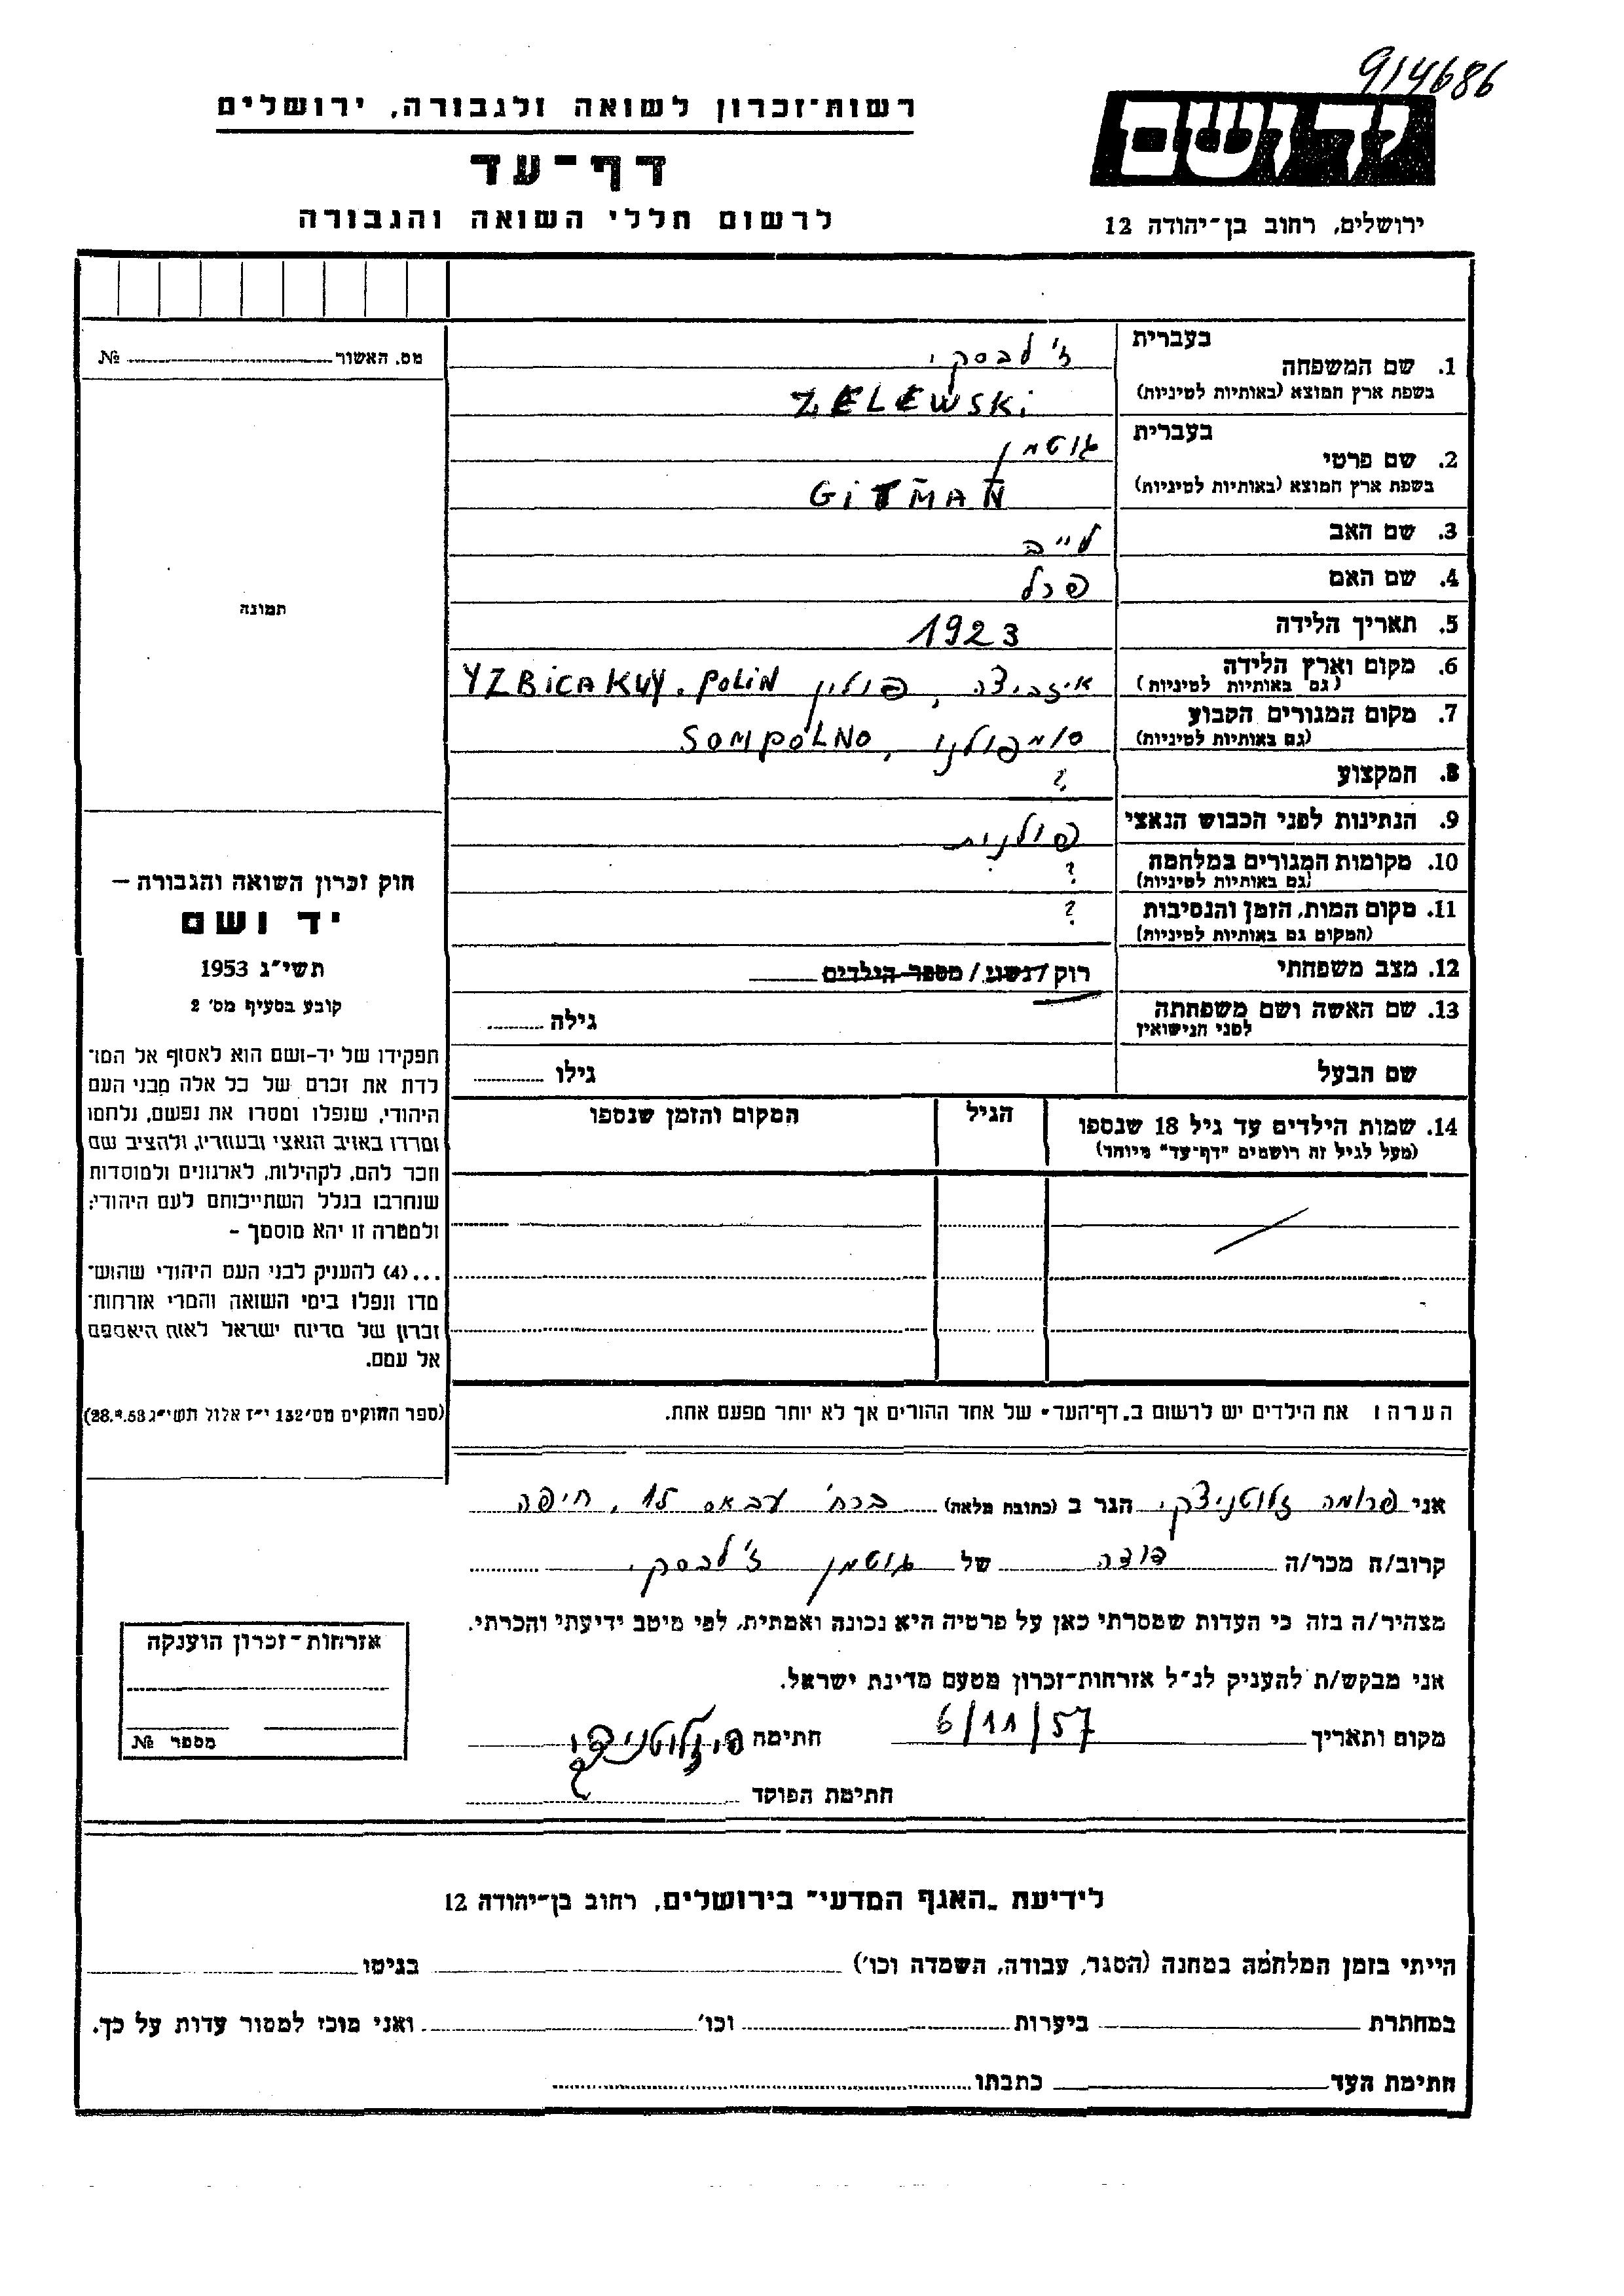 914686
רשות-זכרון לשואה ולגבורה, ירושלים
יד ושם
דף-עד
לרשום חללי השואה והגבורה
ירושלים, רחוב בן-יהודה 12
מס. האשור № 
בעברית
ז'לבסקי
1. שם המשפחה
בשפת ארץ המוצא (באותיות לטיניות)
ZELEWSKi
בעברית
גוטמן
2. שם פרטי
בשפת ארץ המוצא (באותיות לטיניות)
GiTMAN
3. שם האב לייב
4. שם האם פרל
תמונה
5. תאריך הלידה 1923
6. מקום וארץ הלידה איזביצה, פולין YZBiCAKUY. POLiN
(גם באותיות לטיניות)
7. מקום המגורים הקבוע סומפולנו, SOMPOLNO
(גם באותיות לטיניות)
8. המקצוע ?
9. הנתינות לפני הכבוש הנאצי פולנית
10. מקומות המגורים במלחמה ?
(גם באותיות לטיניות)
11. מקום המות, הזמן והנסיבות ?
(המקום גם באותיות לטיניות)
12. מצב משפחתי רווק/נשוי/מספר הילדים
13. שם האשה ושם משפחתה גילה
לפני הנישואין
שם הבעל גילו
14. שמות הילדים עד גיל 18 שנספו הגיל המקום והזמן שנספו
(מעל לגיל זה רושמים "דף-עד" מיוחד)
חוק זכרון השואה והגבורה –
יד ושם
תשי"ג 1953
קובע בסעיף מס' 2
תפקידו של יד-ושם הוא לאסוף אל המו-
לדת את זכרם של כל אלה מבני העם
היהודי, שנפלו ומסרו את נפשם, נלחמו
ומרדו באויב הנאצי ובעוזריו, ולהציב שם
וזכר להם, לקהילות, לארגונים ולמוסדות
שנחרבו בגלל השתייכותם לעם היהודי;
ולמטרה זו יהא מוסמך –
...(4) להעניק לבני העם היהודי שהוש-
מדו ונפלו בימי השואה והמרי אזרחות-
זכרון של מדינת ישראל לאות היאספם
אל עמם.
(ספר החוקים מס' 132 י"ז אלול תשי"ג 28.8.53)
הערה: את הילדים יש לרשום ב„דף-העד" של אחד ההורים אך לא יותר מפעם אחת.
אני פרומה זלוטניצקי הגר ב (כתובת מלאה) ברח' עבאס 15, חיפה
קרוב/ה מכר/ה דודה של גוטמן ז'לבסקי
מצהיר/ה בזה כי העדות שמסרתי כאן על פרטיה היא נכונה ואמתית, לפי מיטב ידיעתי והכרתי.
אני מבקש/ת להעניק לנ"ל אזרחות-זכרון מטעם מדינת ישראל.
מקום ותאריך 6/11/57 חתימה פ. זלוטניצקי
חתימת הפוקד
אזרחות-זכרון הוענקה
מספר №
לידיעת „האגף המדעי" בירושלים, רחוב בן-יהודה 12
הייתי בזמן המלחמה במחנה (הסגר, עבודה, השמדה וכו') בגיטו
במחתרת ביערות וכו' ואני מוכן למסור עדות על כך.
חתימת העד כתבתו